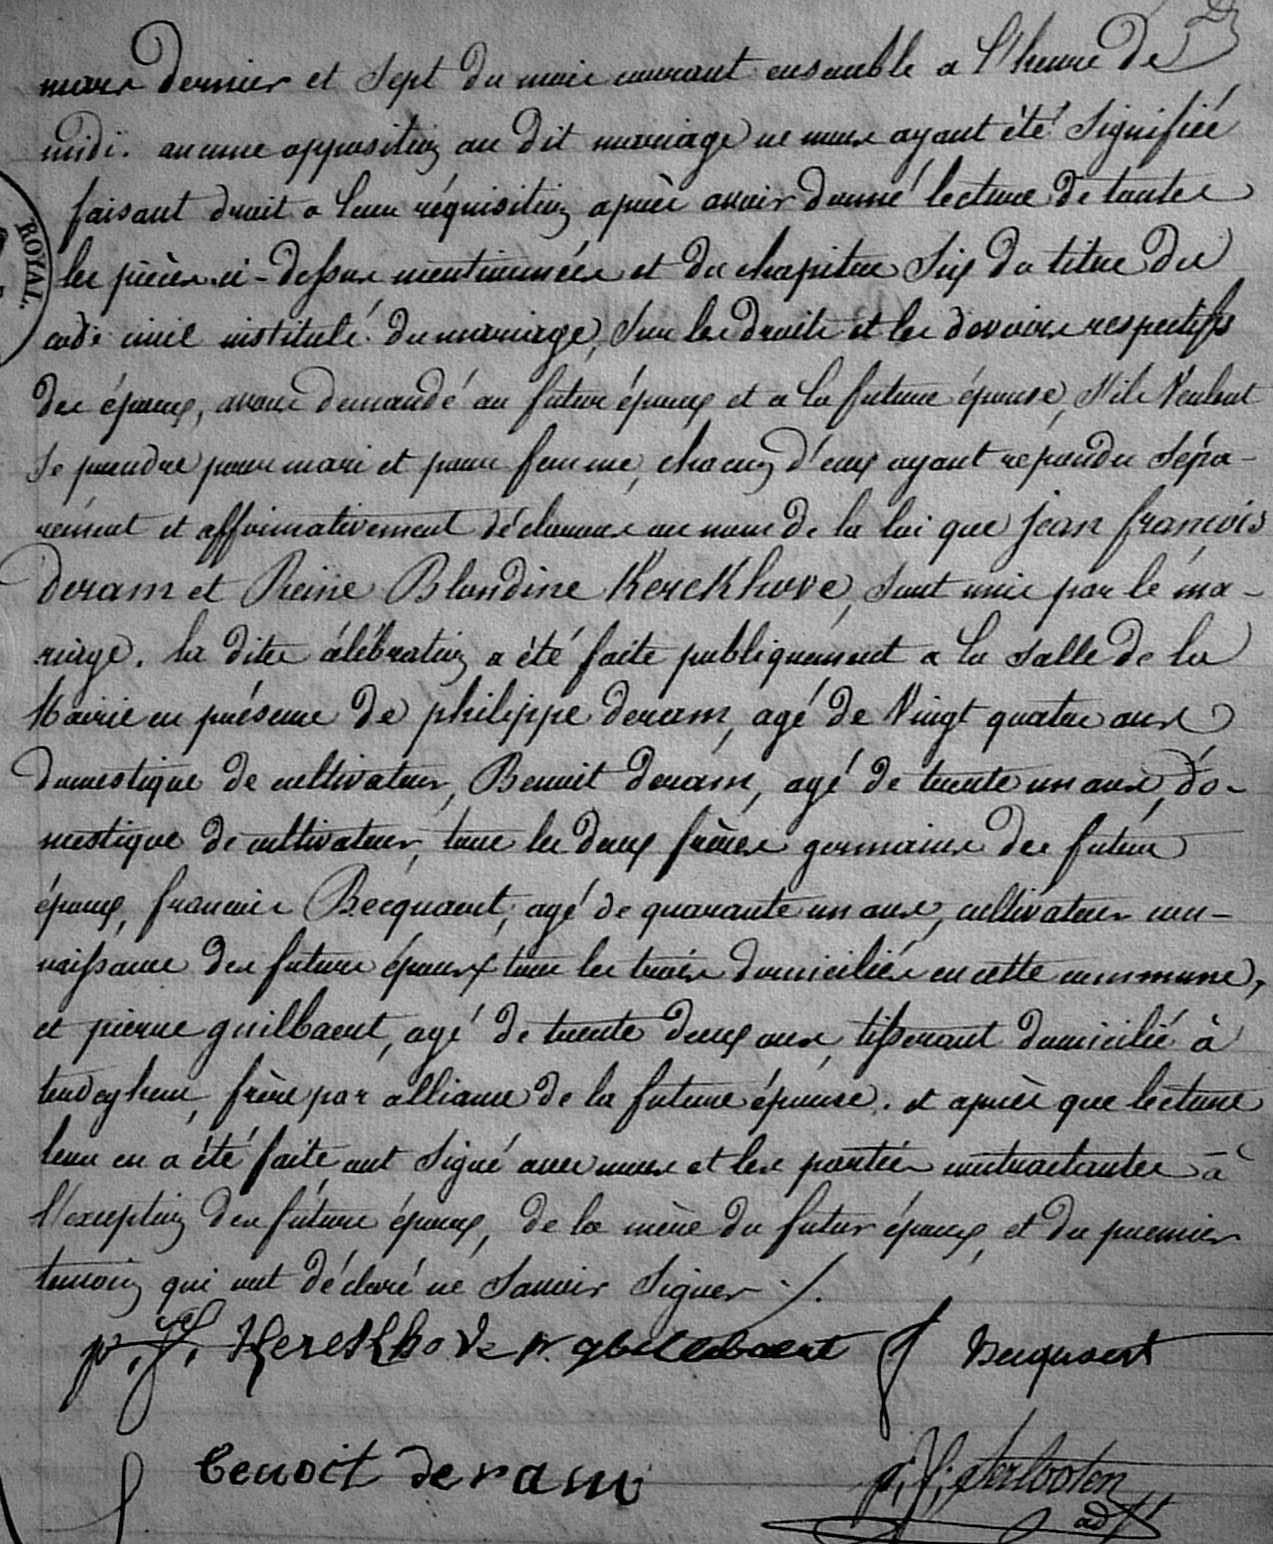 mars dernier et Sept du mois courant ensemble a l'heure de
midi. aucune opposition au dit mariage ne nous ayant été Signifiée
faisant droit a leur réquisition, après avoir donné lecture de toutes
ROYAL.
les pièces ci-dessus mentionnées et du chapitre Six du titre du
code civil institulé du mariage, Sur les droits et les devoirs respectifs
des époux, avons demandé au futur époux et a la future épouse, S'ils Veulent
Se prendre pour mari et pour femme, chacun d'eux ayant répondu Sépa-
rément et affirmativement déclarons au nom de la loi que jean françois
deram et Reine Blandine Kerckhove, Sont unis par le ma-
riage. la dite célébration a été faite publiquement a la Salle de la
Mairie en présence de philippe deram, agé de Vingt quatre ans
domestique de cultivateur, Benoit deram, agé de trente un ans, do-
mestique de cultivateur, tous les deux frères germains des futur
époux, francois Becquaert, agé de quarante un ans, cultivateur con-
naissance des futurs époux tous les trois domiciliés en cette commune,
et pierre guilbaert, agé de trente deux ans, tisserant domicilié à
, frère par alliance de la future épouse. et après que lecture
leur en a été faite, ont Signé avec nous et les parties contractantes à
l'exception des futurs époux, de la mère du futur époux, et du premier
temoin qui ont déclaré ne Savoir Signer ./.
p. j. Kerckhove p. ghilebaert f Becquaert
benoit deram
p. j.
adjt